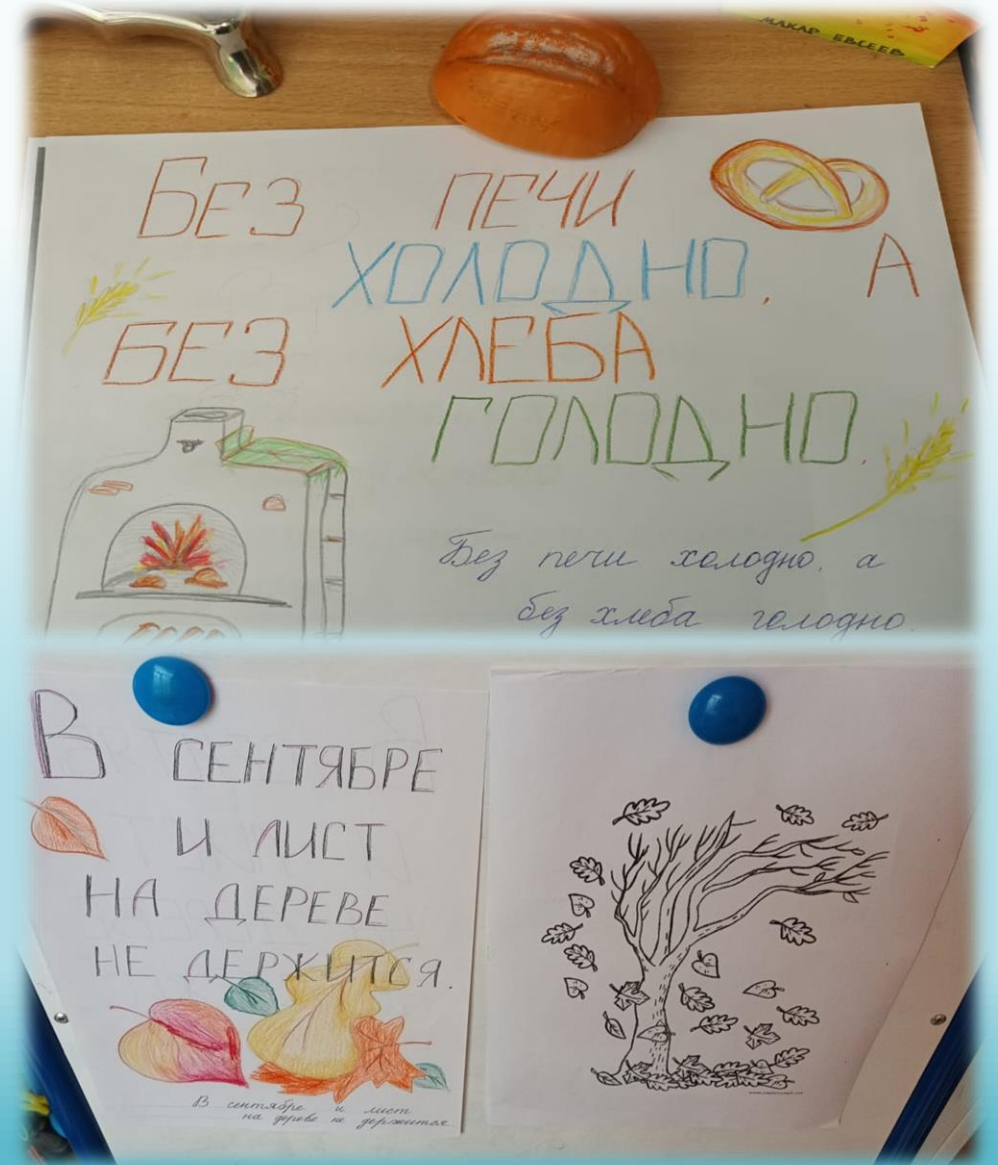 МАКАР ЕВСЕЕВ
БЕЗ ПЕЧИ
ХОЛОДНО, А
БЕЗ ХЛЕБА
ГОЛОДНО.
Без печи холодно, а
без хлеба голодно.
В СЕНТЯБРЕ
И ЛИСТ
НА ДЕРЕВЕ
НЕ ДЕРЖИТСЯ.
В сентябре и лист
на дереве не держится.